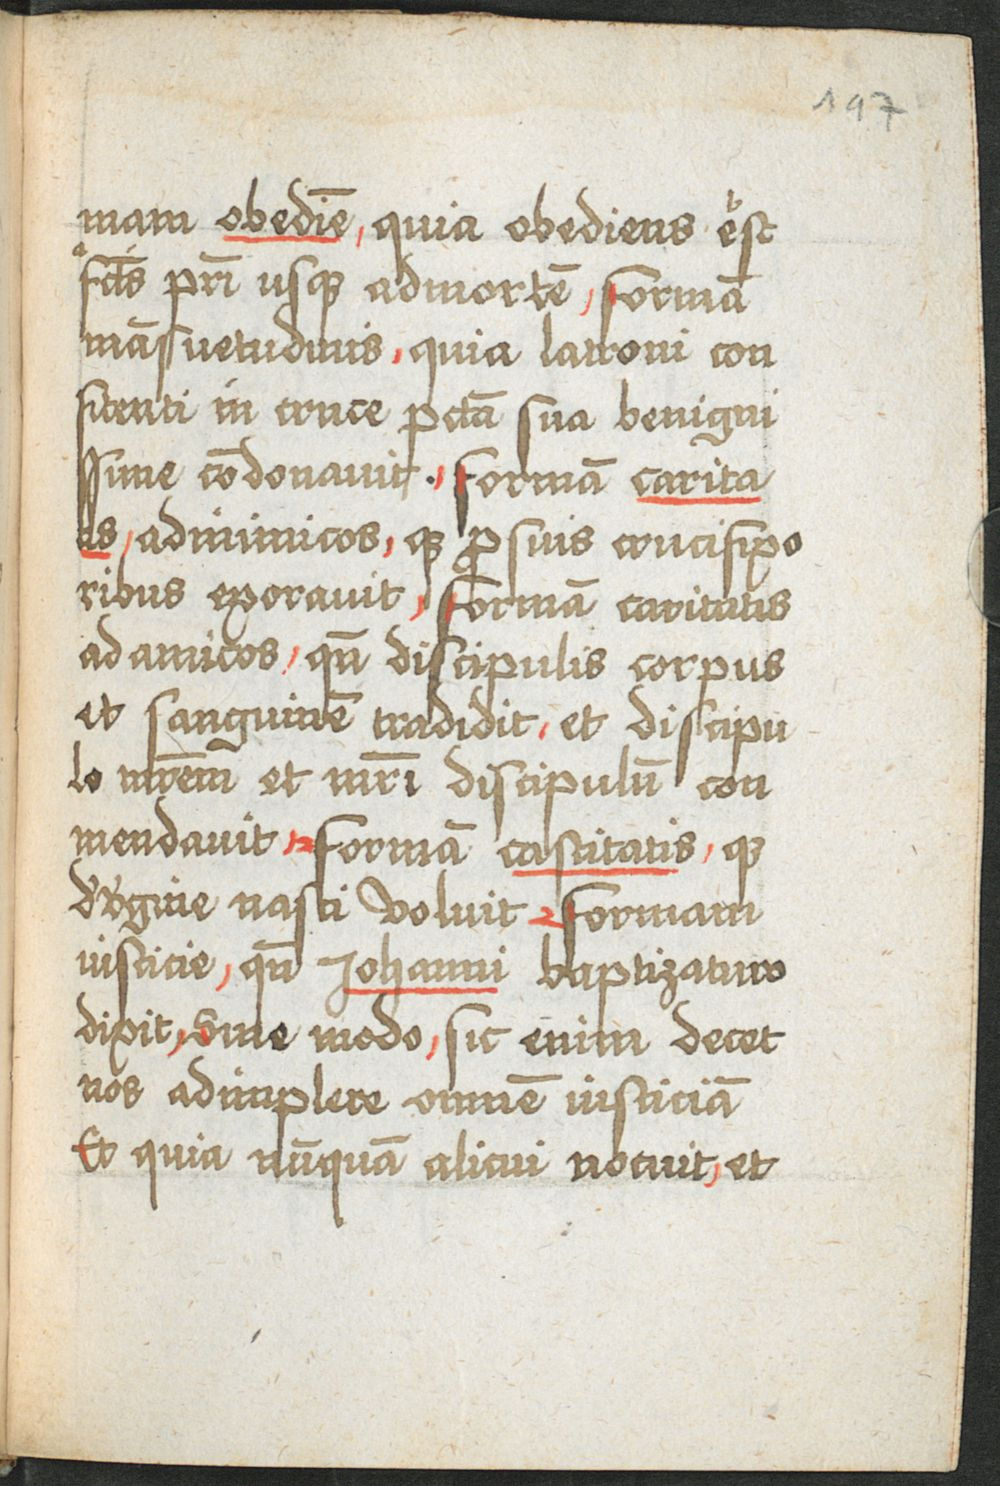 197
mam obediē, quia obediens est
fcūs pr̄i usqꝫ admortē, formā
māsuetudinis, quia latroni con
fitenti in cruce pctā sua benigni
ssime cōdonauit, formā carita
tis, adinimicos, qꝫ ꝓ suis crucifixo
ribus exorauit, formā caritatis
ad amicos, qn̄ discipulis corpus
et sanguinē tradidit, et discipu
lo mr̄em et mr̄i discipulū con
mendauit, formā castitatis, qꝫ
d' v'gine nasci voluit formam
iusticie, qn̄ Johanni baptizaturo
dixit, Sine modo, sic enim decet
nos adimplere omnē iusticiā
Et quia nūquā alicui nocuit, et